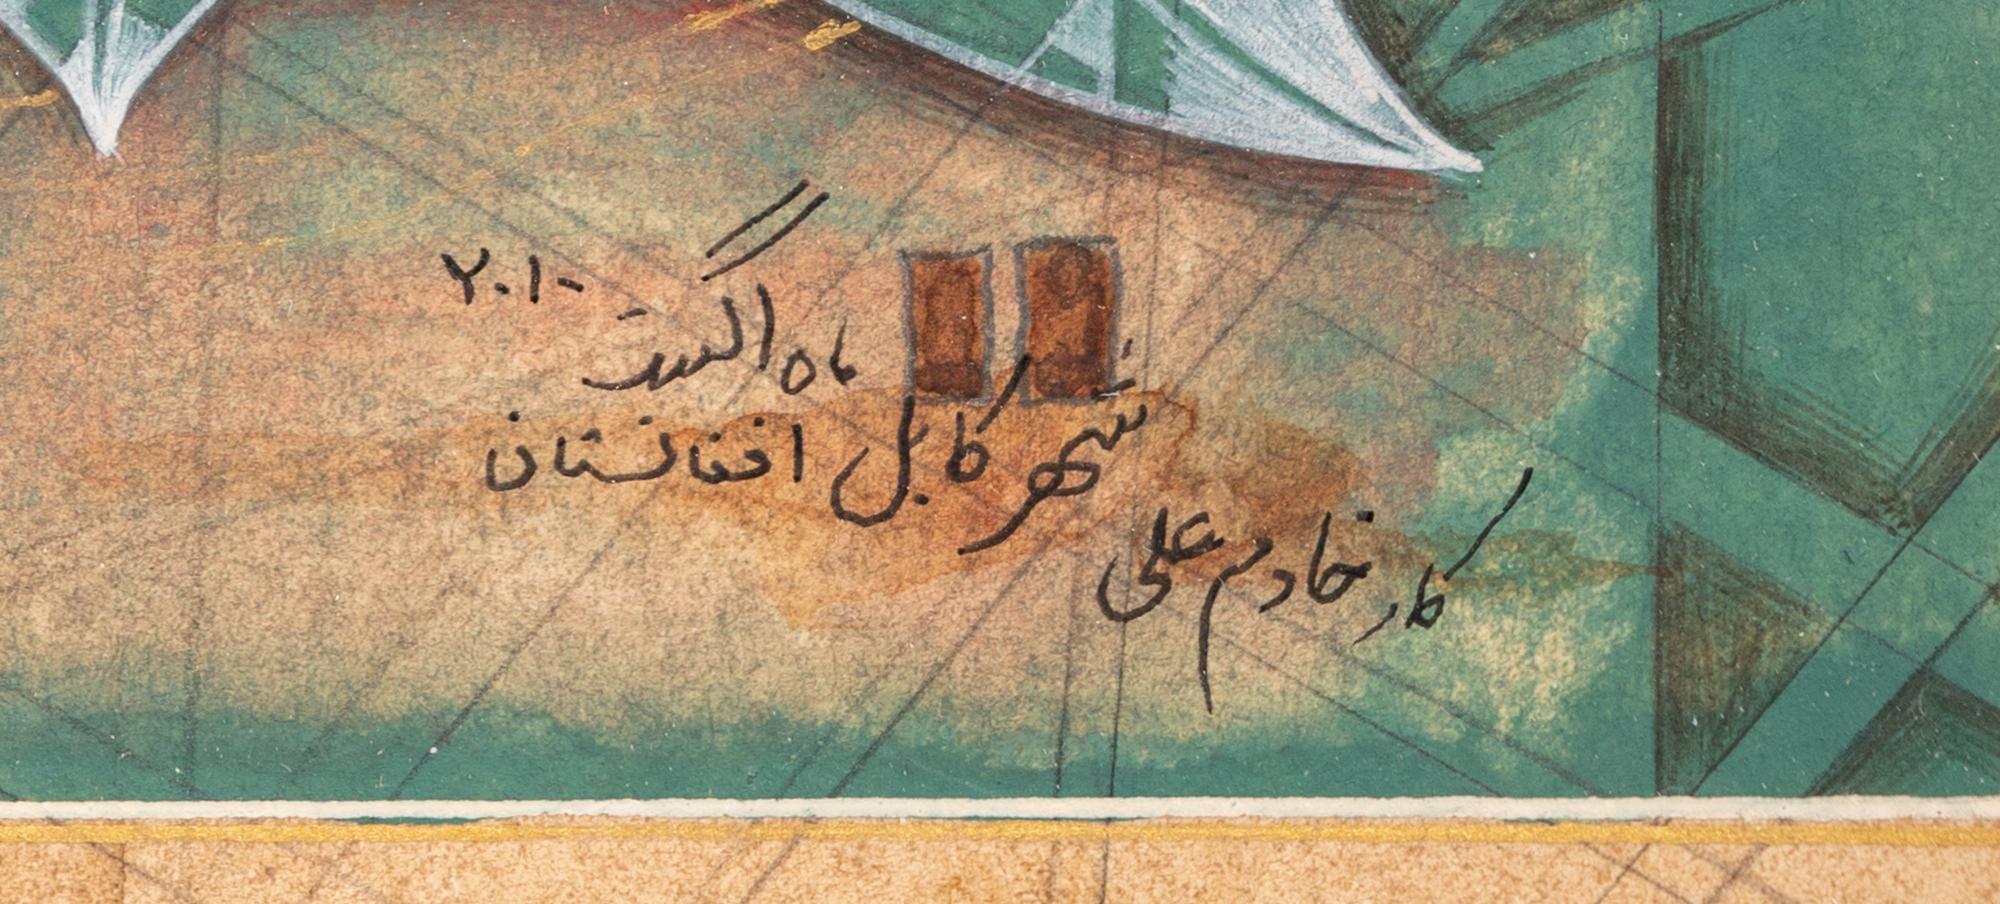 کار خادم علی
شهر کابل افغانستان
ماه اگست ۲۰۱۰